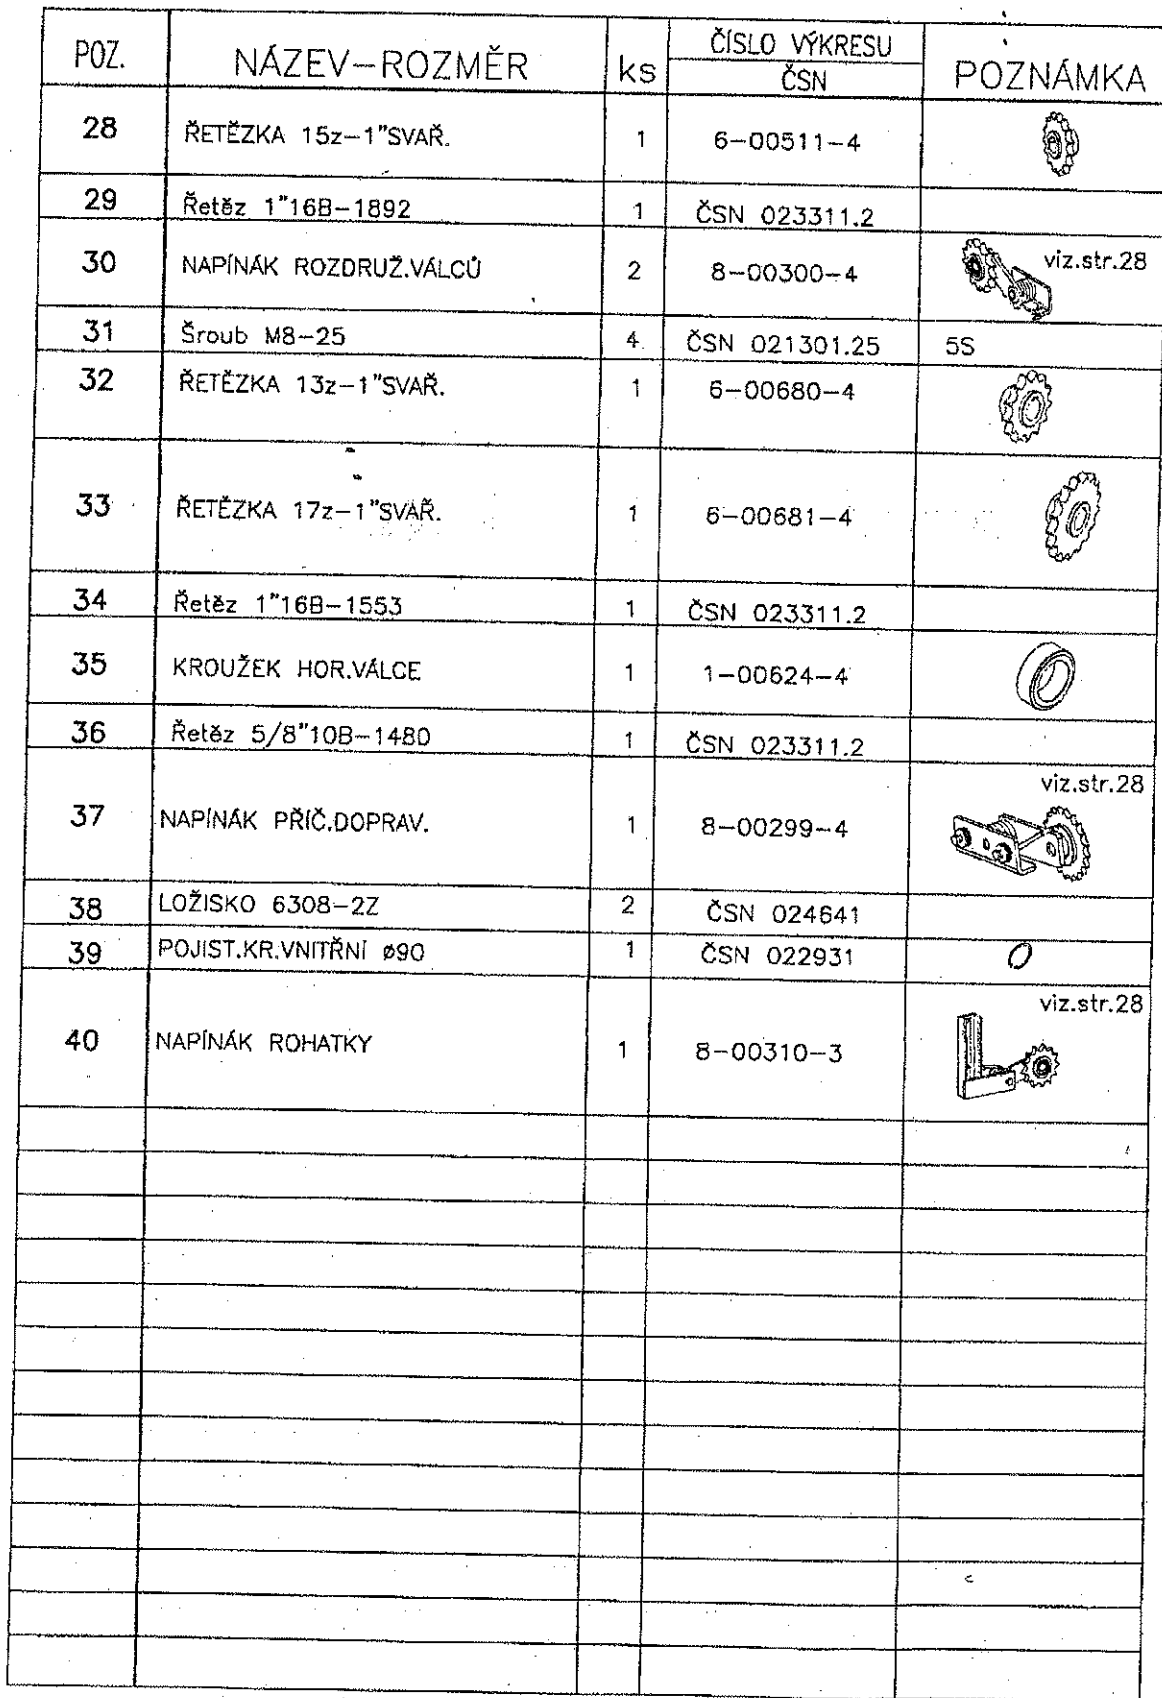 POZ. NÁZEV-ROZMĚR ks ČÍSLO VÝKRESU POZNÁMKA
ČSN
28 ŘETĚZKA 15z-1"SVAŘ. 1 6-00511-4
29 Řetěz 1"16B-1892 1 ČSN 023311.2
30 NAPÍNÁK ROZDRUŽ.VÁLCŮ 2 8-00300-4 viz.str.28
31 Šroub M8-25 4 ČSN 021301.25 5S
32 ŘETĚZKA 13z-1"SVAŘ. 1 6-00680-4
33 ŘETĚZKA 17z-1"SVAŘ. 1 6-00681-4
34 Řetěz 1"16B-1553 1 ČSN 023311.2
35 KROUŽEK HOR.VÁLCE 1 1-00624-4
36 Řetěz 5/8"10B-1480 1 ČSN 023311.2
37 NAPÍNÁK PŘÍČ.DOPRAV. 1 8-00299-4 viz.str.28
38 LOŽISKO 6308-2Z 2 ČSN 024641
39 POJIST.KR.VNITŘNÍ ø90 1 ČSN 022931
40 NAPÍNÁK ROHATKY 1 8-00310-3 viz.str.28